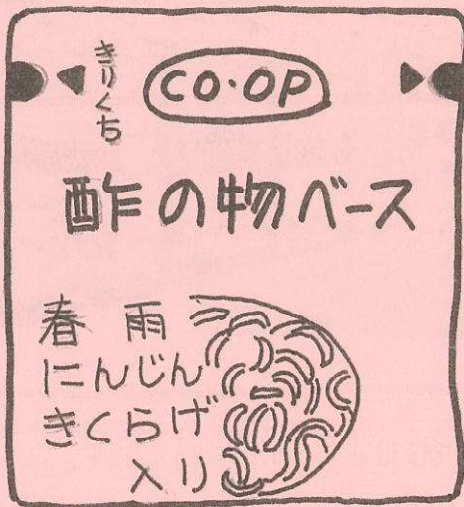 きりくち
CO·OP
酢の物ベース
春雨
にんじん
きくらげ
入り